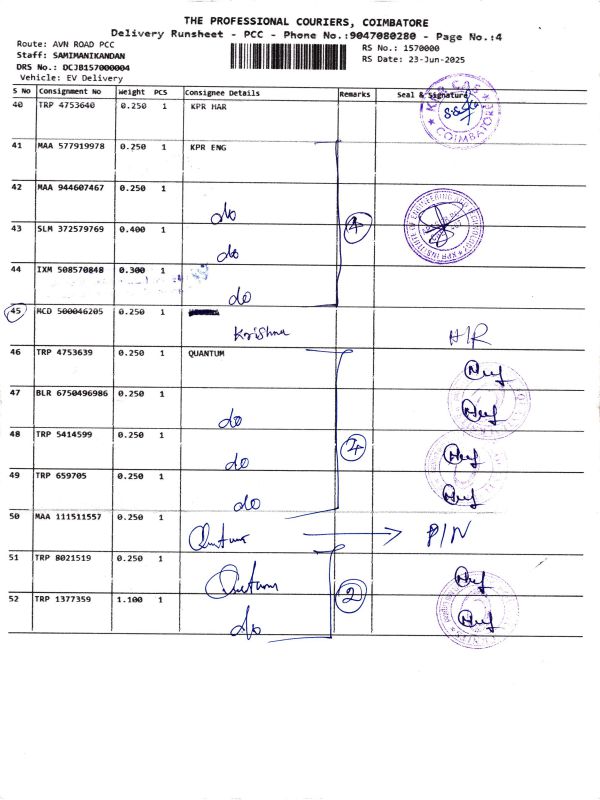 THE PROFESSIONAL COURIERS, COIMBATORE
Delivery Runsheet - PCC - Phone No.:9047080280 - Page No.:4
Route: AVN ROAD PCC
Staff: SAMIMANIKANDAN
DRS No.: DCJB157000004
Vehicle: EV Delivery
RS No.: 1570000
RS Date: 23-Jun-2025
S No Consignment No Weight PCS Consignee Details Remarks Seal & Signature
40 TRP 4753640 0.250 1 KPR HAR
COIMBATORE
41 MAA 577919978 0.250 1 KPR ENG
42 MAA 944607467 0.250 1
do
43 SLM 372579769 0.400 1
do
4
44 IXM 508570848 0.300 1
do
45 MCD 500046205 0.250 1
Krishna
46 TRP 4753639 0.250 1 QUANTUM
47 BLR 6750496986 0.250 1
do
48 TRP 5414599 0.250 1
do
49 TRP 659705 0.250 1
do
50 MAA 111511557 0.250 1
Quantum P/N
51 TRP 8021519 0.250 1
Quantum
52 TRP 1377359 1.100 1
do
2